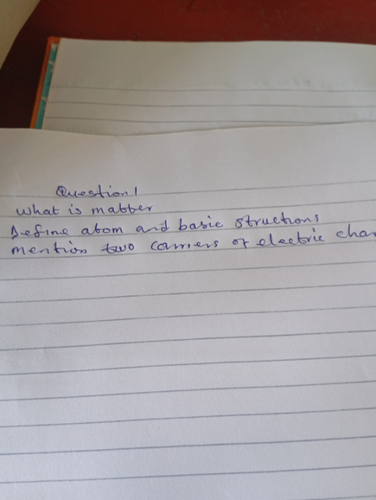 Question 1
What is matter
Define atom and basic structions
mention two carriers of electric char